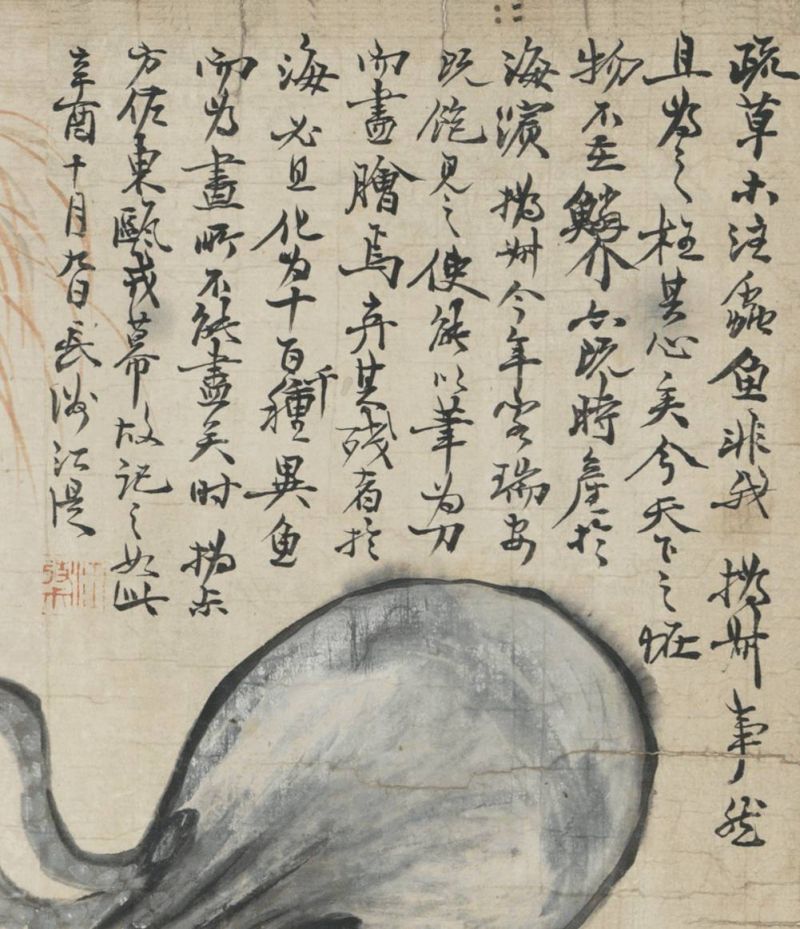 疏草木注蟲魚非我撝叔事然
且為之枉其心矣今天下之恠
物不在鱗介亦既時產於
海濱撝叔今年客瑞安
既飽見之使能以筆為刀
而盡膾焉弃其殘者於
海必且化為十百千種異魚
而為畫所不能盡矣時撝尗
方佐東甌戎幕故記之如此
辛酉十月九日長洲江湜